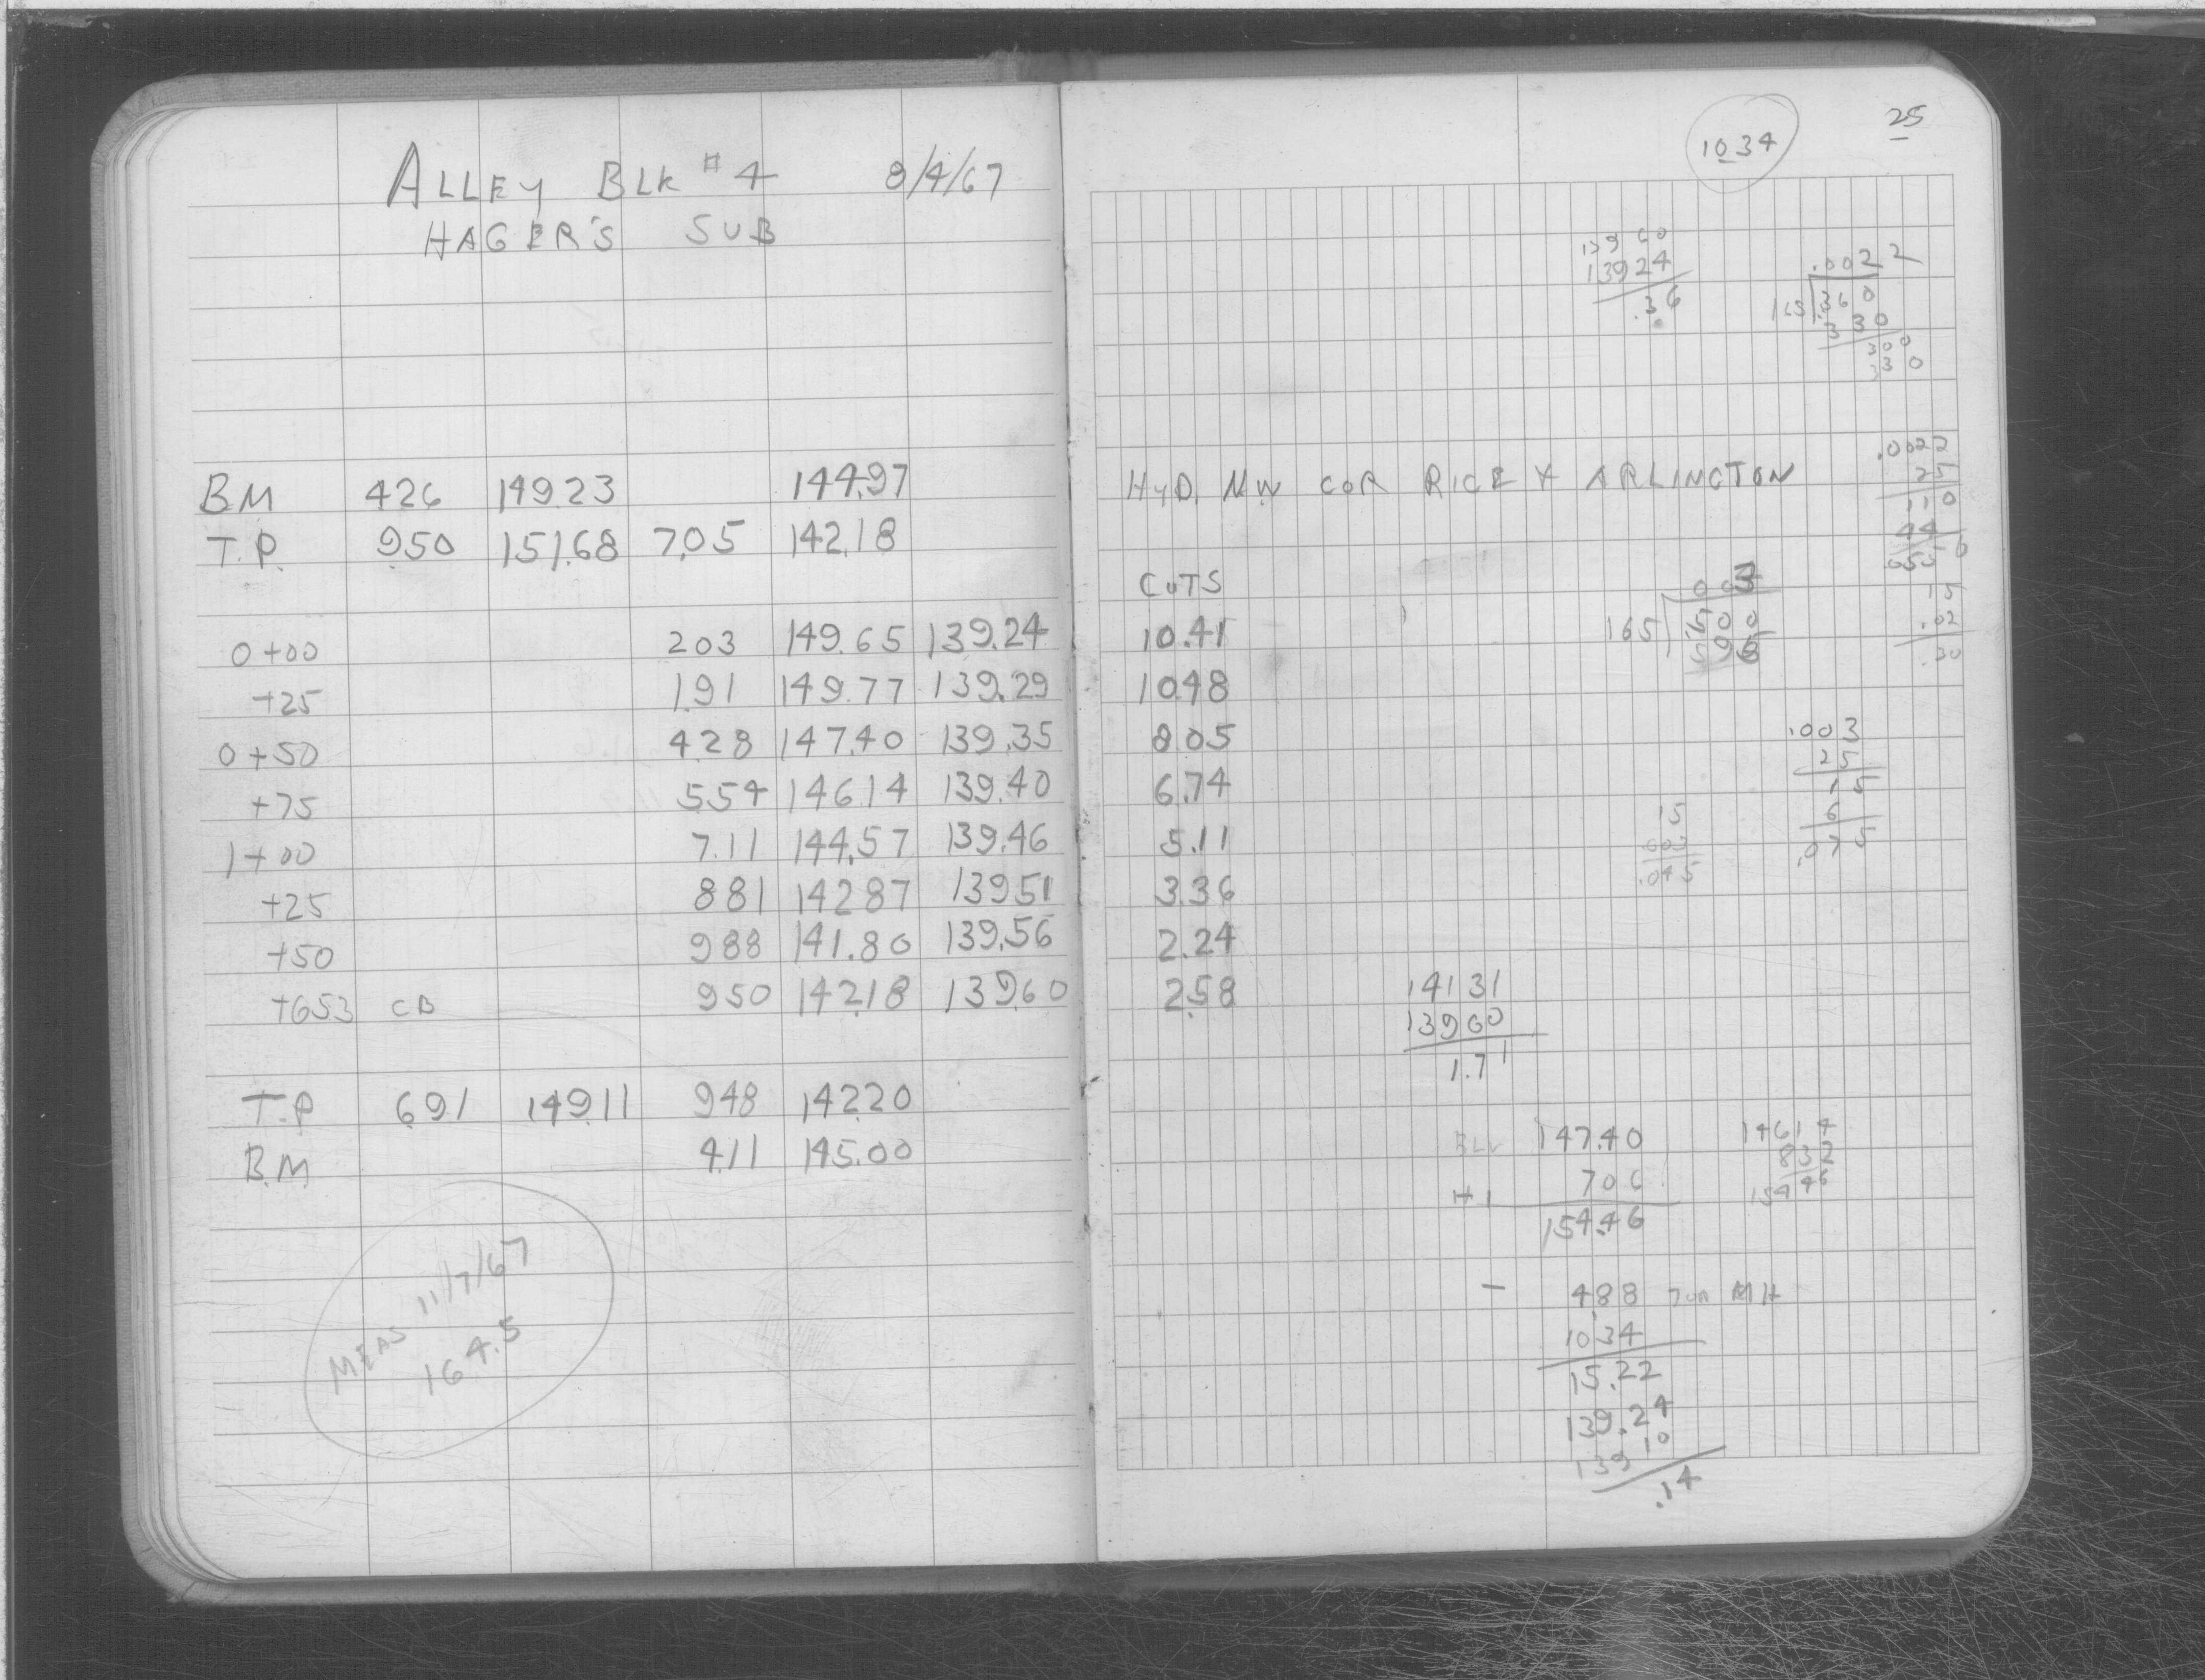 ALLEY BLK #4 8/4/67
HAGER'S SUB
BM 426 149.23 144.97
T.P. 950 151.68 7.05 142.18
0+00 203 149.65 139.24
+25 1.91 149.77 139.29
0+50 428 147.40 139.35
+75 554 146.14 139.40
1+00 7.11 144.57 139.46
+25 881 142.87 139.51
+50 988 141.80 139.56
+653 CB 950 142.18 139.60
T.P 691 149.11 948 142.20
B.M 4.11 145.00
MEAS 11/7/67
164.5
25
1034
HYD. NW COR RICE & ARLINGTON
CUTS
10.41
10.48
8.05
6.74
5.11
3.36
2.24
2.58
139 60
139 24
.36
.0022
165 .360
330
300
330
.0022
25
110
44
.0556
15
.02
.30
003
165 .500
.003
25
15
6
.075
15
.003
.045
141 31
139 60
1.71
147.40
706
HI
154.46
146 14
832
154 46
- 4.88 MH
1034
15.22
139.24
139 10
.14